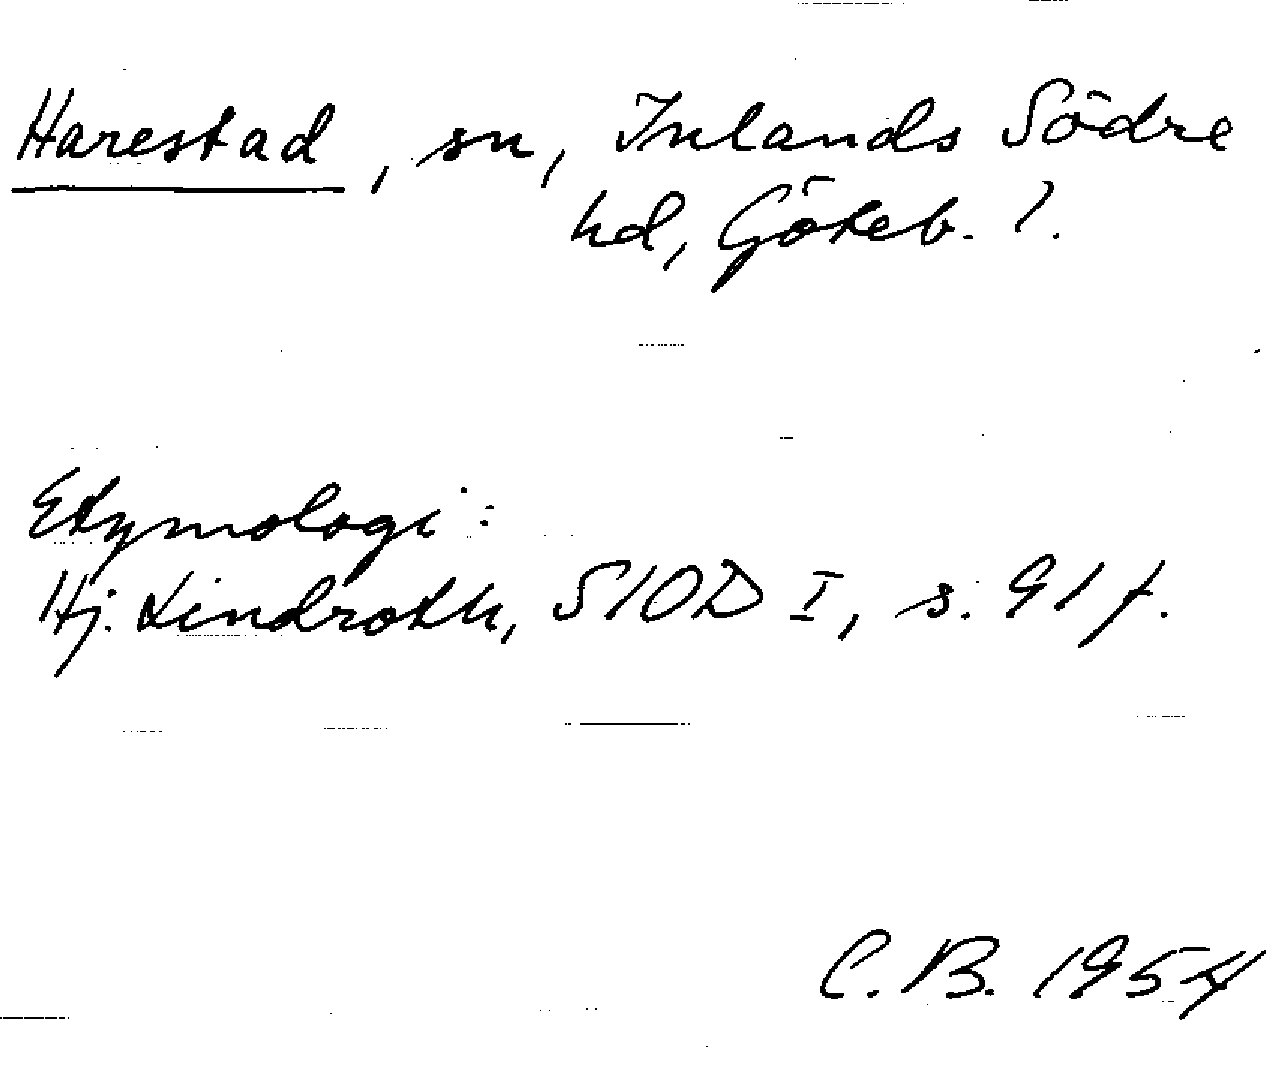 Harestad, sn, Inlands Södre
hd, Göteb. l.
Etymologi:
Hj. Lindroth, SIOD I, s. 91 f.
C. B. 1954